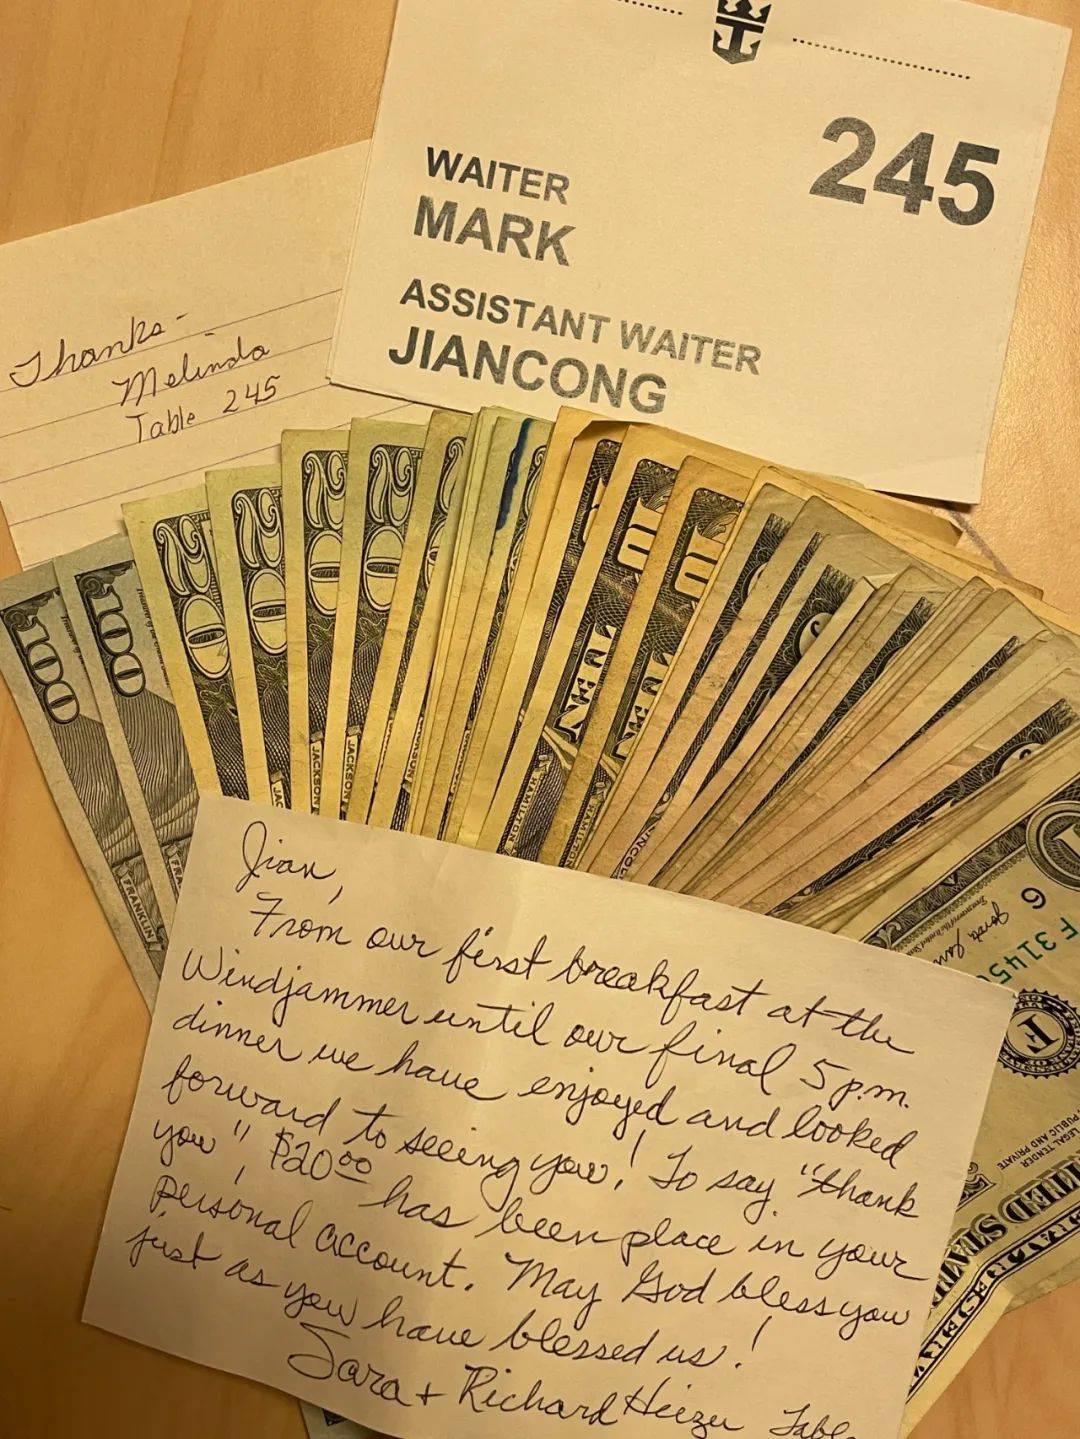 245
WAITER
MARK
ASSISTANT WAITER
JIANCONG
Thanks-
Melinda
Table 245
100
100
20
20
20
20
JACKSON
JACKSON
FRANKLIN
HAMILTON
Jian,
From our first breakfast at the
Windjammer until our final 5 p.m.
dinner we have enjoyed and looked
forward to seeing you! To say "thank
you", $20.00 has been place in your
personal account. May God bless you
just as you have blessed us!
Sara + Richard